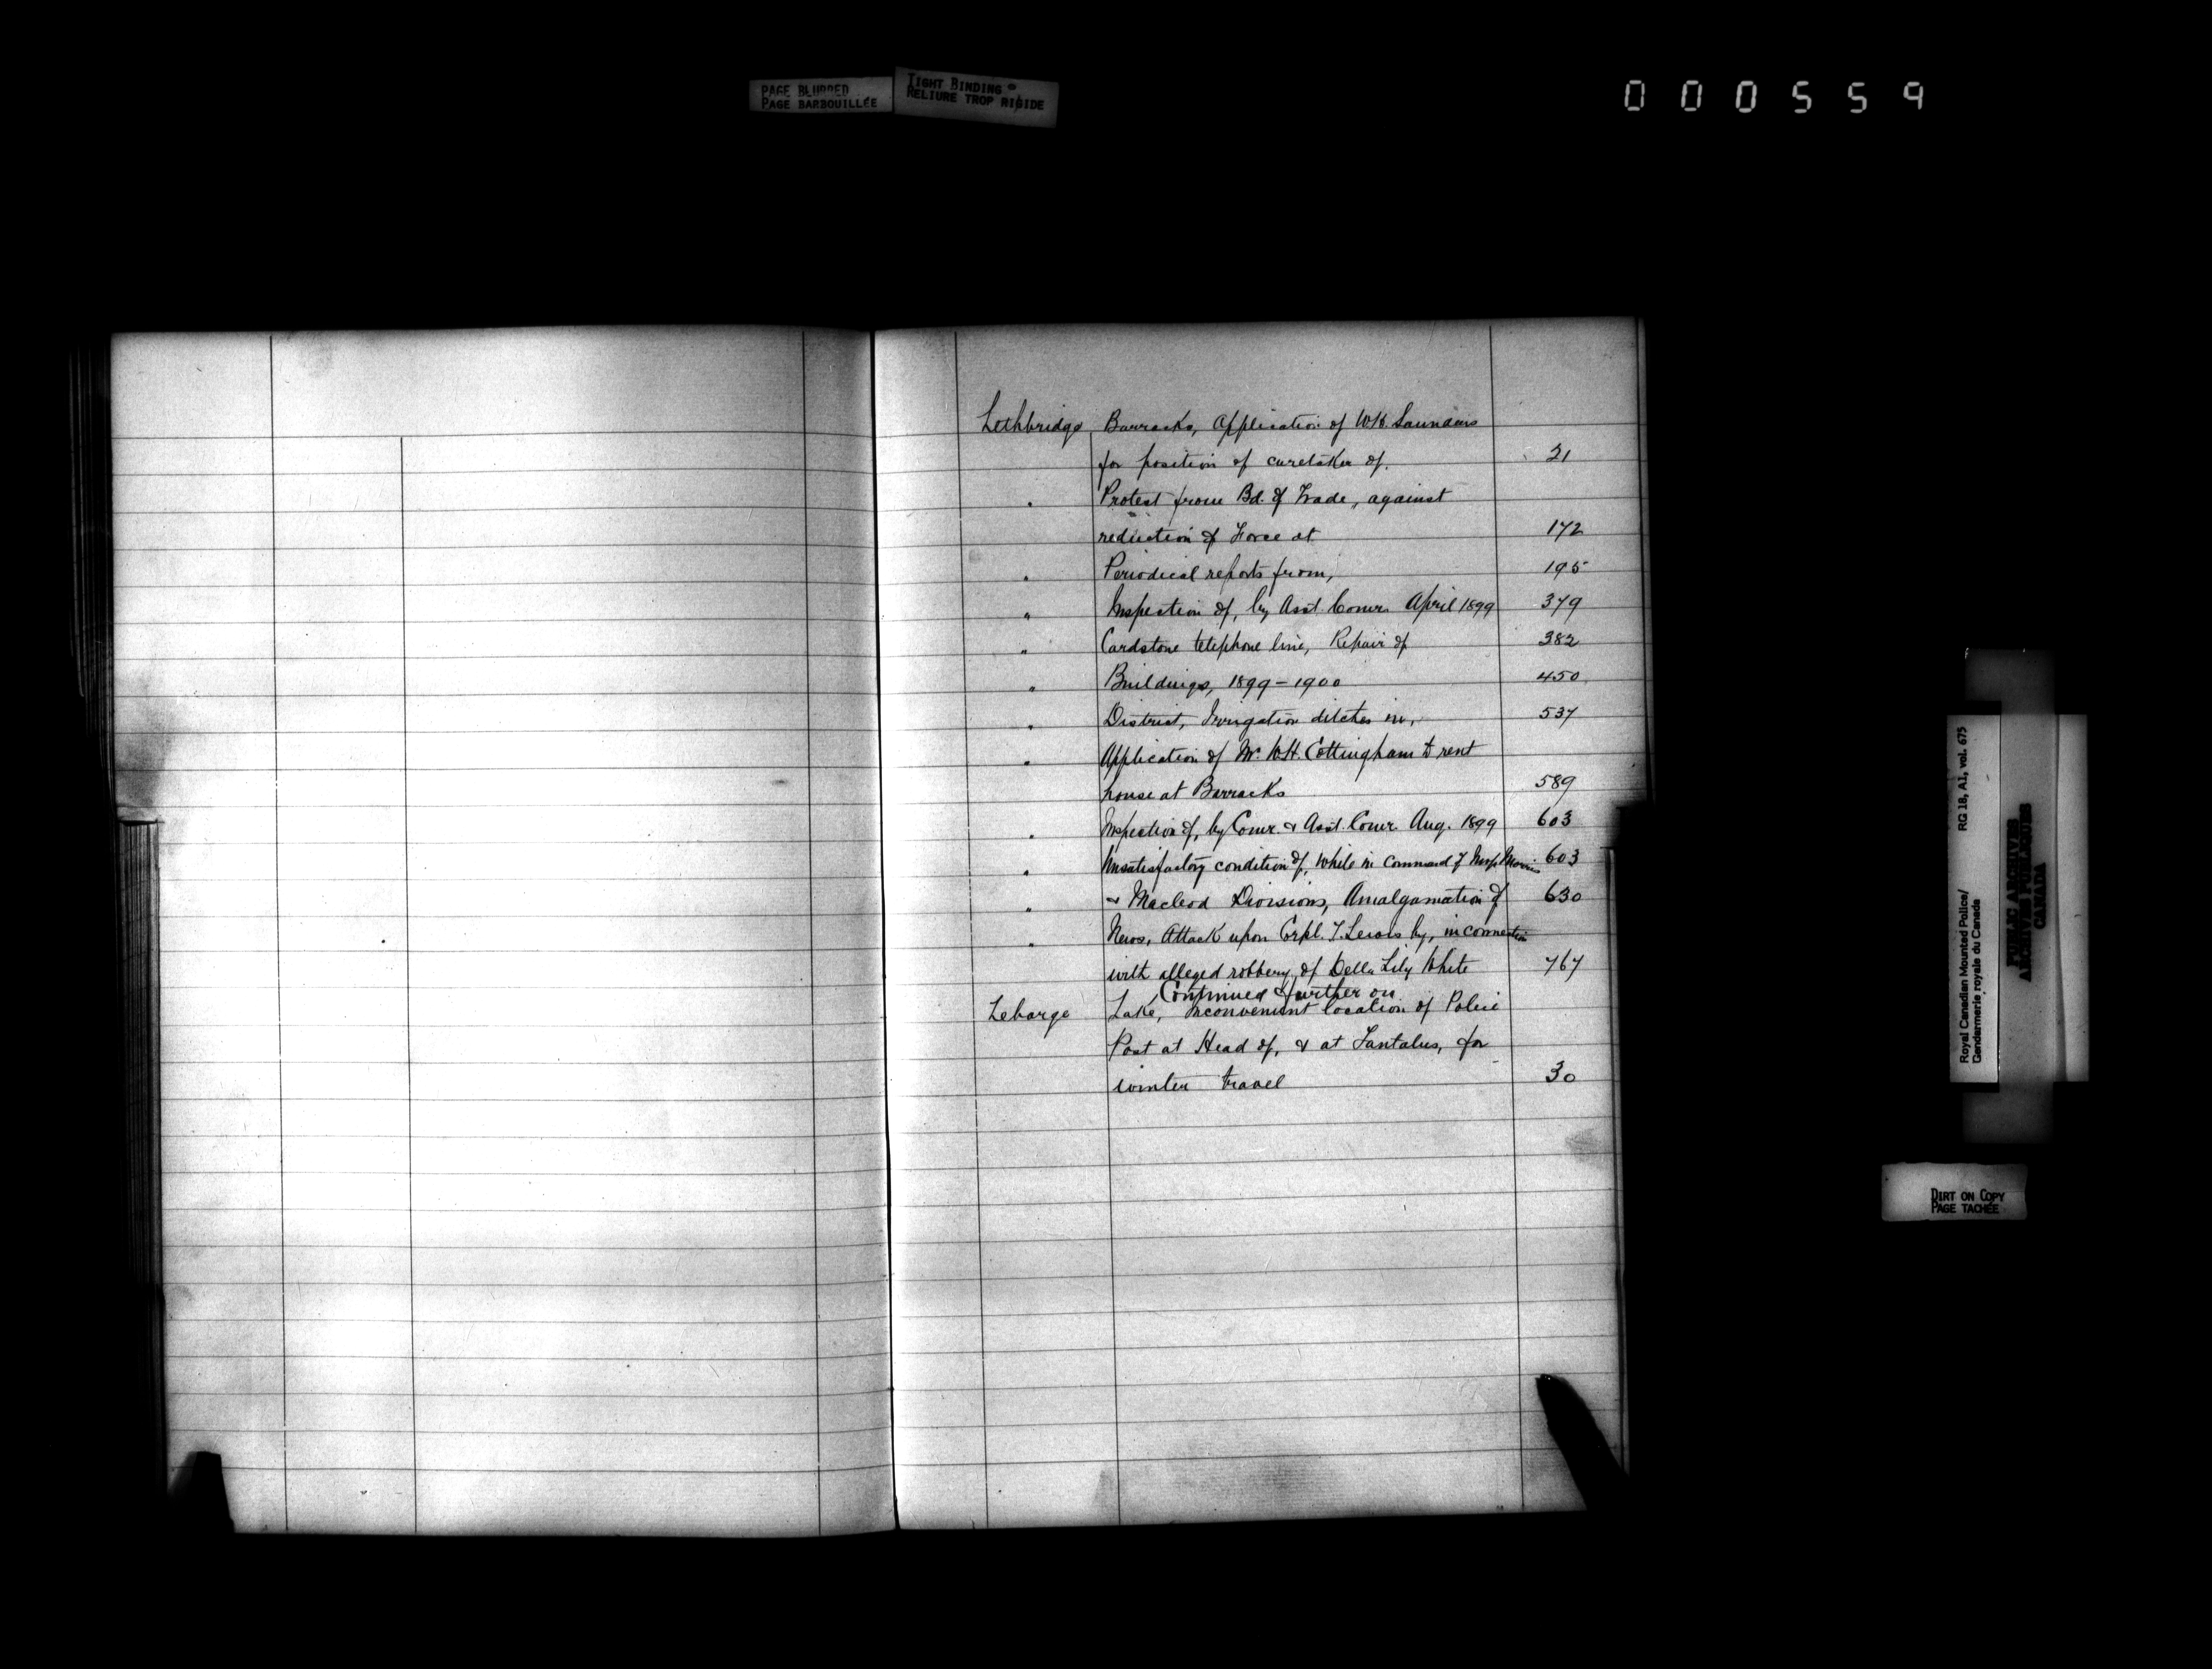 PAGE BLURRED
PAGE BARBOUILLÉE
TIGHT BINDING
RELIURE TROP RIGIDE
000559
Lethbridge Barracks, Application of W.H. Saunders
for position of caretaker of. 21
" Protest from Bd. of Trade, against
reduction of Force at 172
" Periodical reports from, 195
" Inspection of, by Asst. Comr. April 1899 379
" Cardstone telephone line, Repair of 382
" Buildings, 1899-1900 450
" District, Irrigation ditches in, 537
" Application of Mr. W.H. Cottingham to rent
house at Barracks 589
" Inspection of, by Comr. & Asst. Comr. Aug. 1899 603
" Unsatisfactory condition of, while in command of Insp. Morris 603
" & Macleod Divisions, Amalgamation of 630
" News, Attack upon Corpl. T. Lewis by, in connection
with alleged robbery of Della Lily White 767
Continued further on
Lebarge Lake, Inconvenient location of Police
Post at Head of, & at Tantalus, for
winter travel 30
Royal Canadian Mounted Police/
Gendarmerie royale du Canada
RG 18, A1, vol. 675
PUBLIC ARCHIVES
ARCHIVES PUBLIQUES
CANADA
DIRT ON COPY
PAGE TACHÉE